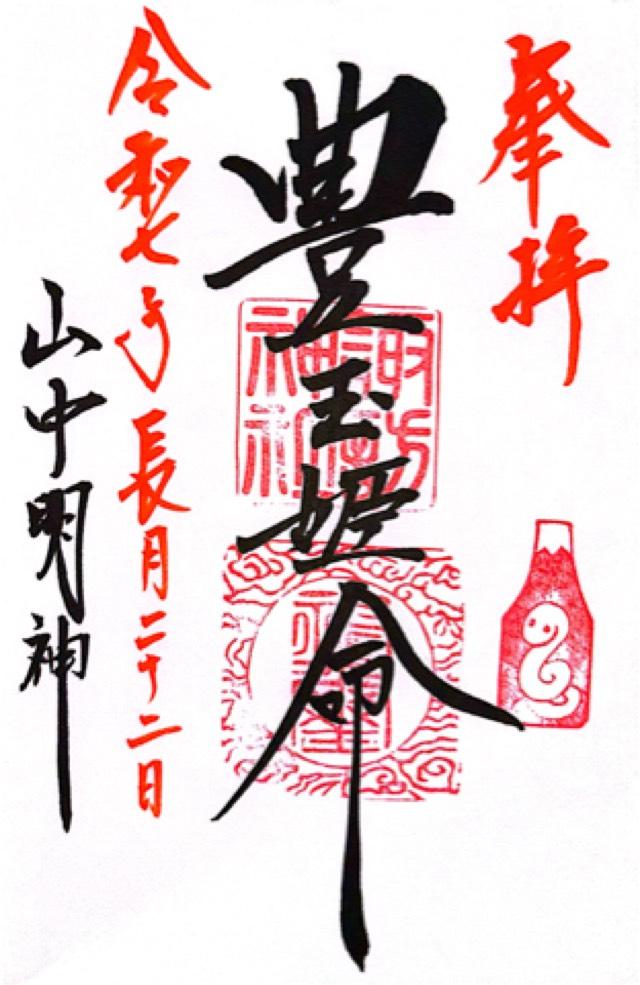 奉拝
豊玉姫命
諏訪
神社
令和七年長月二十二日
山中明神